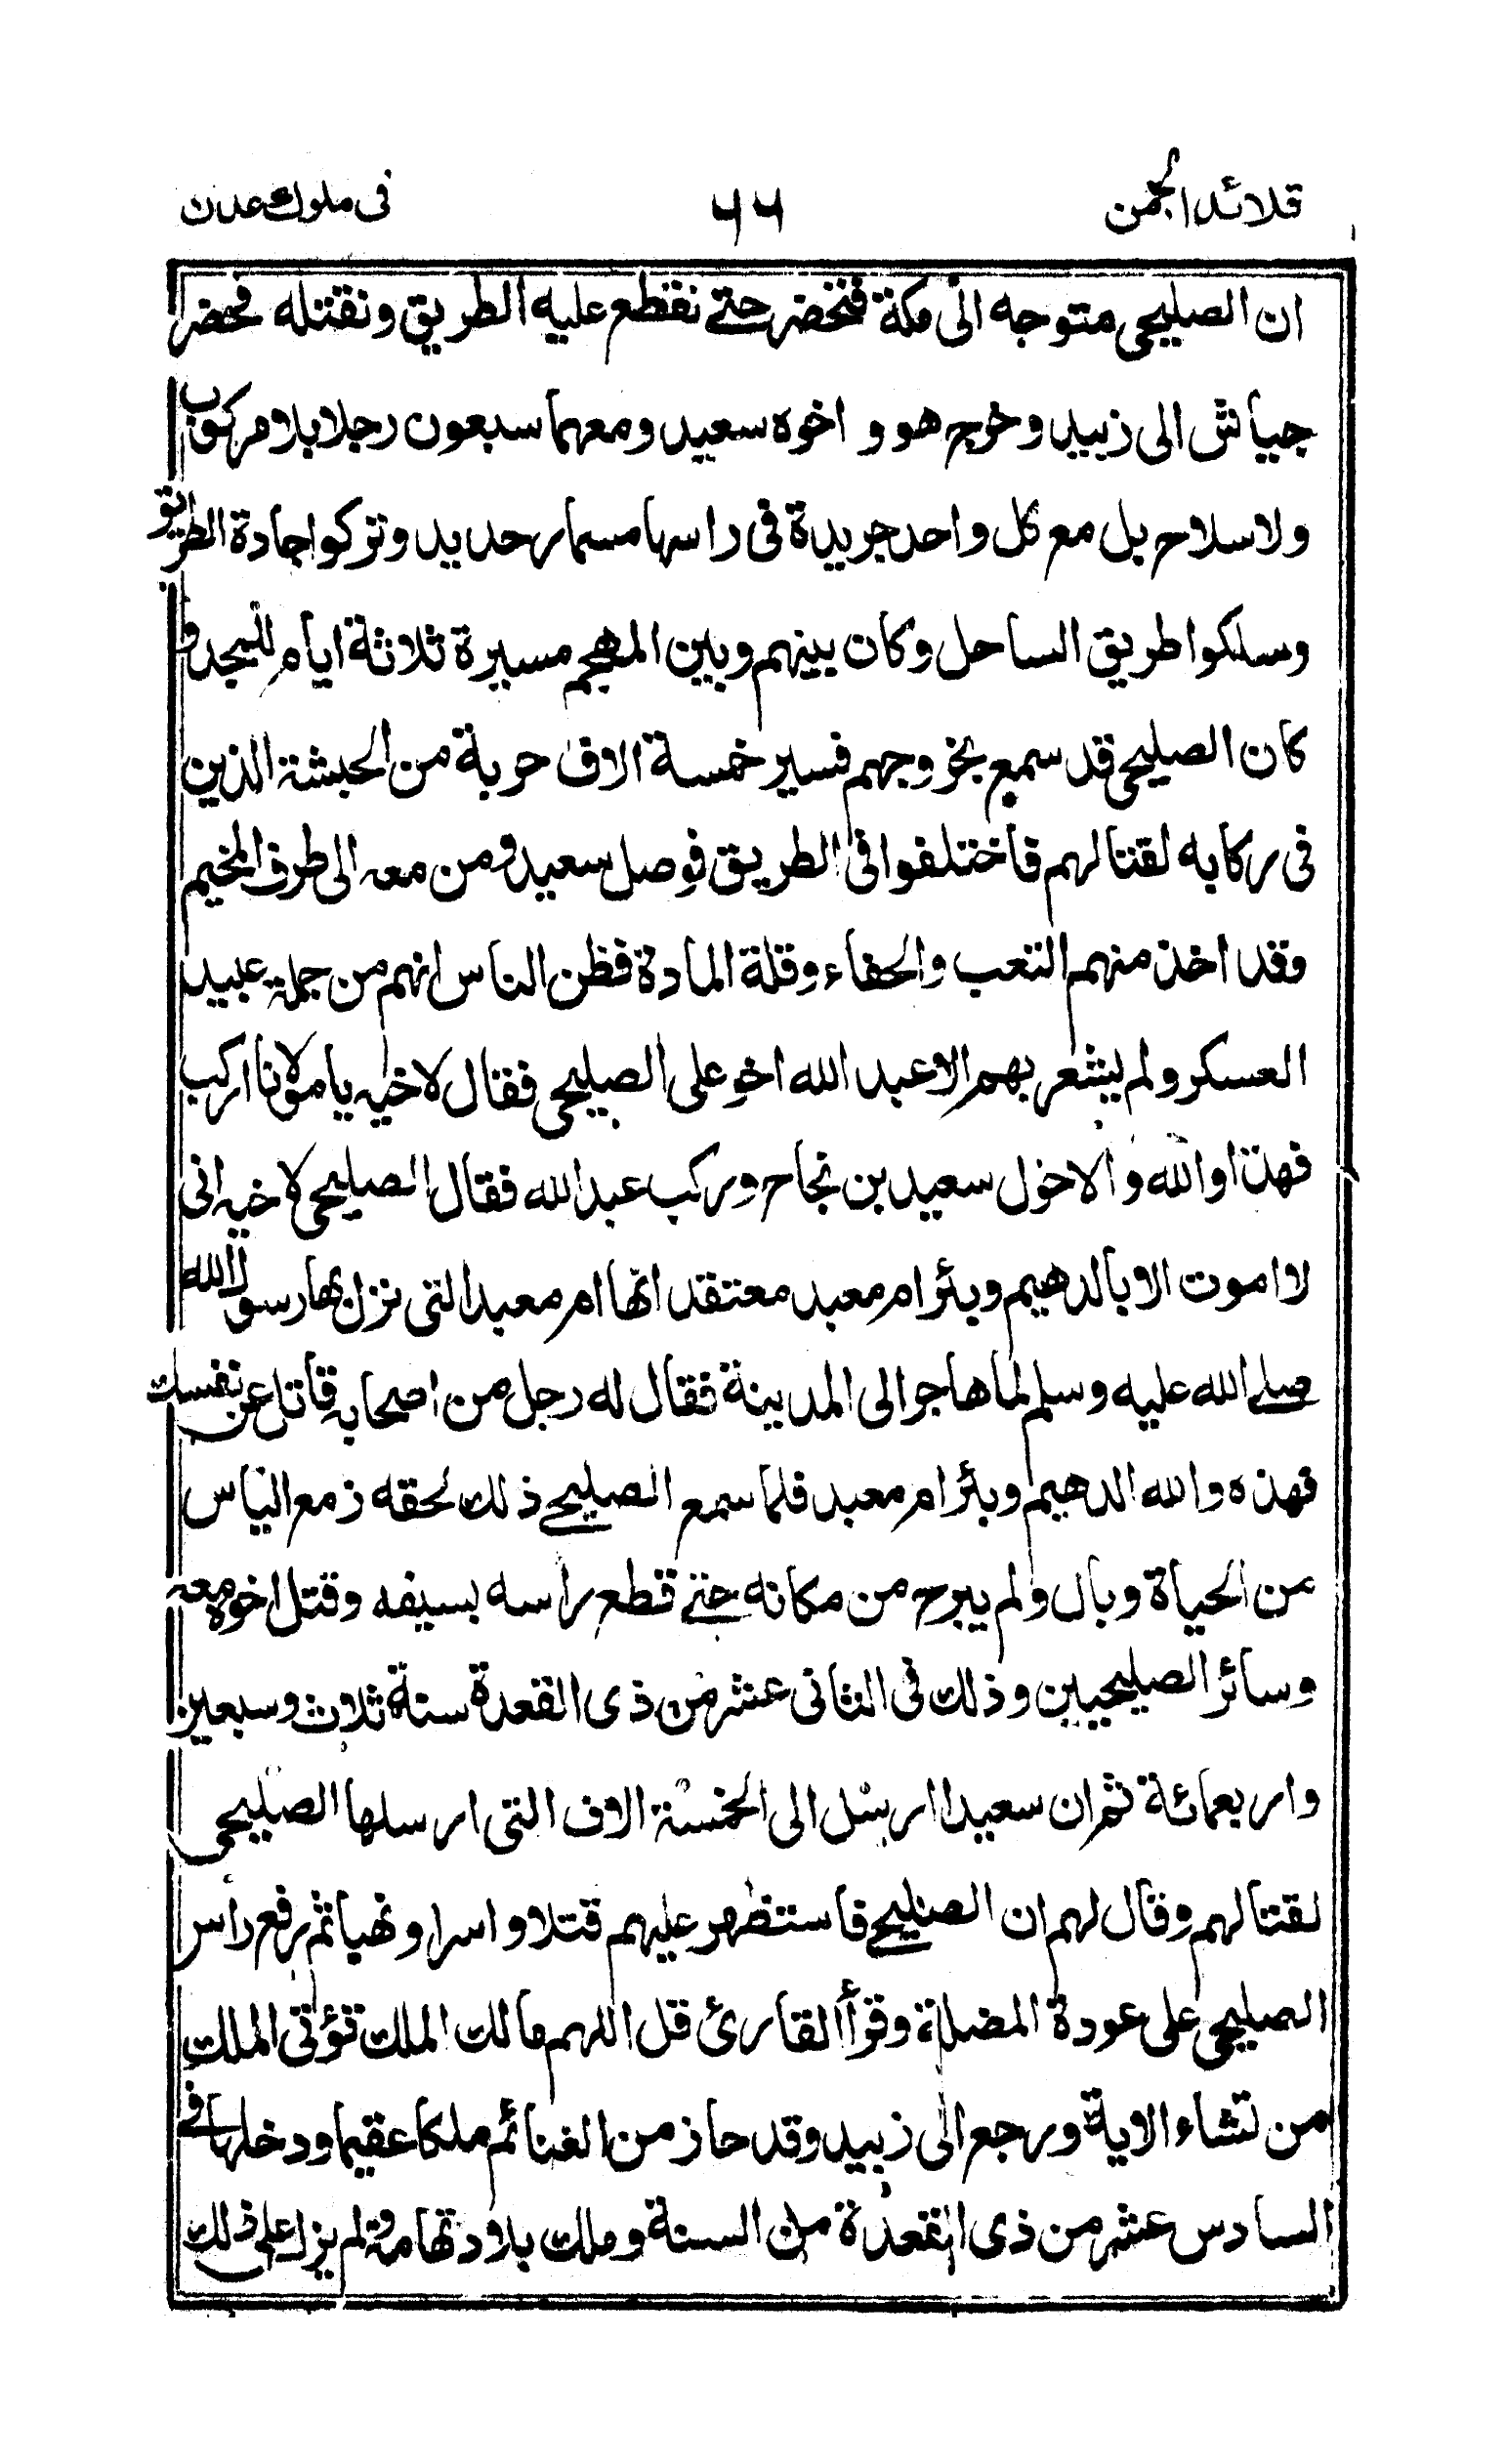 قلائد الجمن ٦٦ فى ملوك عدن
ان الصليحى متوجه الى مكة فتحضر حتى نقطع عليه الطريق ونقتله فحضر
جياش الى زبيد وخرج هو و اخوه سعيد ومعهما سبعون رجلا بلا مركوب
ولا سلاح بل مع كل واحد جريدة فى راسها مسمار حديد وتركوا جادة الطريق
وسلكوا طريق الساحل وكان بينهم وبين المهجم مسيرة ثلاثة ايام للمجد و
كان الصليحى قد سمع بخروجهم فسير خمسة الاف حربة من الحبشة الذين
فى ركابه لقتالهم فاختلفوا فى الطريق فوصل سعيد ومن معه الى طرف المخيم
وقد اخذ منهم التعب والحفاء وقلة المادة فظن الناس انهم من جملة عبيد
العسكر ولم يشعر بهم الا عبد الله اخو على الصليحى فقال لاخيه يا مولانا اركب
فهذا والله والاخول سعيد بن نجاح وركب عبد الله فقال الصليحى لاخيه انى
لا اموت الا بالدهيم وبئر ام معبد معتقد انها ام معبد التى نزل بها رسول الله
صلى الله عليه وسلم لما هاجر الى المدينة فقال له رجل من اصحابه قاتل عن نفسك
فهذه والله الدهيم وبئر ام معبد فلما سمع الصليحى ذلك لحقه زمع الياس
من الحياة وبال ولم يبرح من مكانه حتى قطع راسه بسيفه وقتل اخوه معه
وسائر الصليحيين وذلك فى الثانى عشر من ذى القعدة سنة ثلاث وسبعين
واربعمائة ثم ان سعيدا ارسل الى الخمسة الاف التى ارسلها الصليحى
لقتالهم وقال لهم ان الصليحى فاستظهر عليهم قتلا واسرا ونهبا ثم رفع راس
الصليحى على عودة المضلة وقرأ القارئ قل اللهم مالك الملك تؤتى الملك
من تشاء الاية ورجع الى زبيد وقد حاز من الغنائم ملكا عقيما ودخلها فى
السادس عشر من ذى القعدة من السنة وملك بلاد تهامة ولم يزل على ذلك